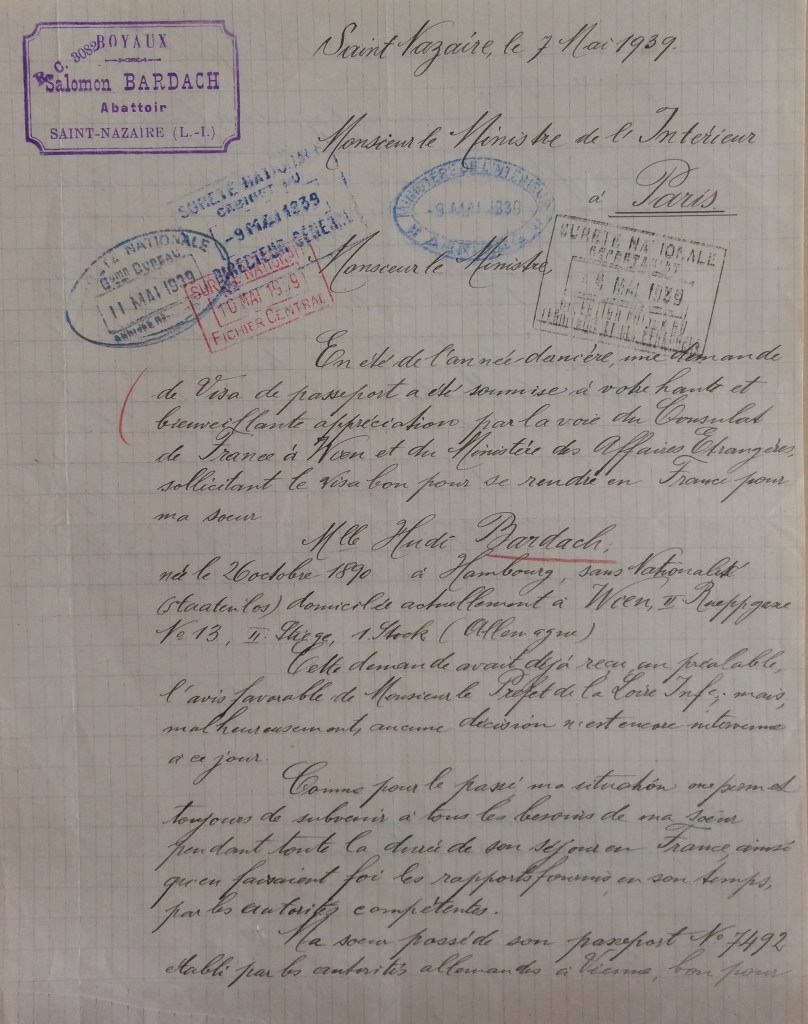 BOYAUX
R. C. 3082
Salomon BARDACH
Abattoir
SAINT-NAZAIRE (L.-I.)
Saint Nazaire, le 7 Mai 1939.
Monsieur le Ministre de l'Intérieur
à Paris
SURETÉ NATIONALE
CABINET DU
-9 MAI 1939
DIRECTEUR GÉNÉRAL
MINISTÈRE DE L'INTÉRIEUR
-9 MAI 1939
SURETÉ NATIONALE
SECRÉTARIAT
MAI 1939
SURETÉ NATIONALE
6ème BUREAU
11 MAI 1939
ARRIVÉE
SURETÉ NATIONALE
10 MAI 1939
FICHIER CENTRAL
Monsieur le Ministre
En été de l'année dernière, une demande
de Visa de passeport a été soumise à votre haute et
bienveillante appréciation par la voie du Consulat
de France à Wien et du Ministère des Affaires Etrangères,
sollicitant le visa bon pour se rendre en France pour
ma soeur
Mlle Hudi Bardach,
née le 26 octobre 1890 à Hambourg, sans Nationalité
(staatenlos) domiciliée actuellement à Wien, II Rueppgasse
No 13, II. Stiege, 1 Stock (Allemagne)
Cette demande avait déjà reçu, au préalable,
l'avis favorable de Monsieur le Préfet de la Loire Infre; mais,
malheureusement, aucune décision n'est encore intervenue
à ce jour.
Comme pour le passé ma situation me permet
toujours de subvenir à tous les besoins de ma soeur
pendant toute la durée de son séjour en France, ainsi
qu'en faisaient foi les rapports fournis, en son temps,
par les autorités compétentes.
Ma soeur possède son passeport No 7492
établi par les autorités allemandes à Vienne, bon pour